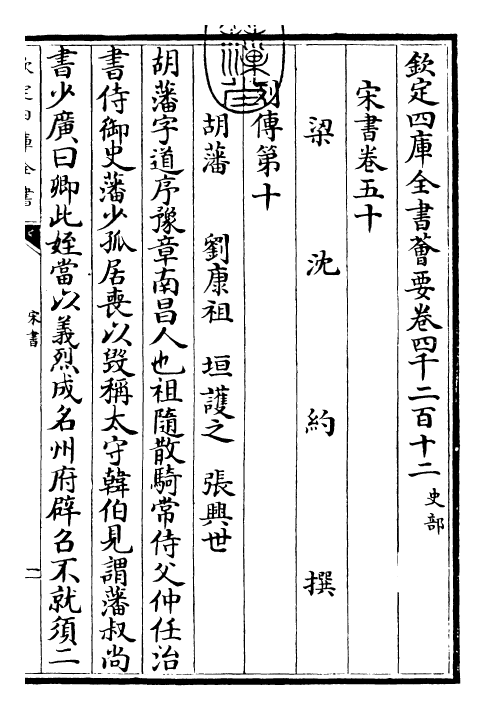 欽定四庫全書薈要卷四千二百十二 史部
宋書卷五十
梁 沈 約 撰
列傳第十
胡藩 劉康祖 垣護之 張興世
胡藩字道序豫章南昌人也祖隨散騎常侍父仲任治
書侍御史藩少孤居喪以毀稱太守韓伯見謂藩叔尚
書少廣曰卿此姪當以義烈成名州府辟召不就須二
欽定四庫全書
宋書
一